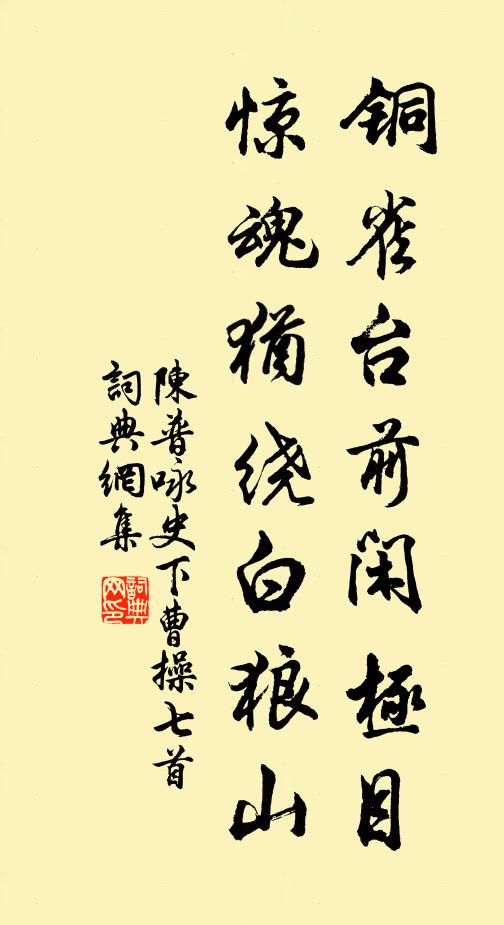 铜雀台前闲极目
惊魂犹绕白狼山
陳普咏史下曹操七首
詞典網集
詞典
网印